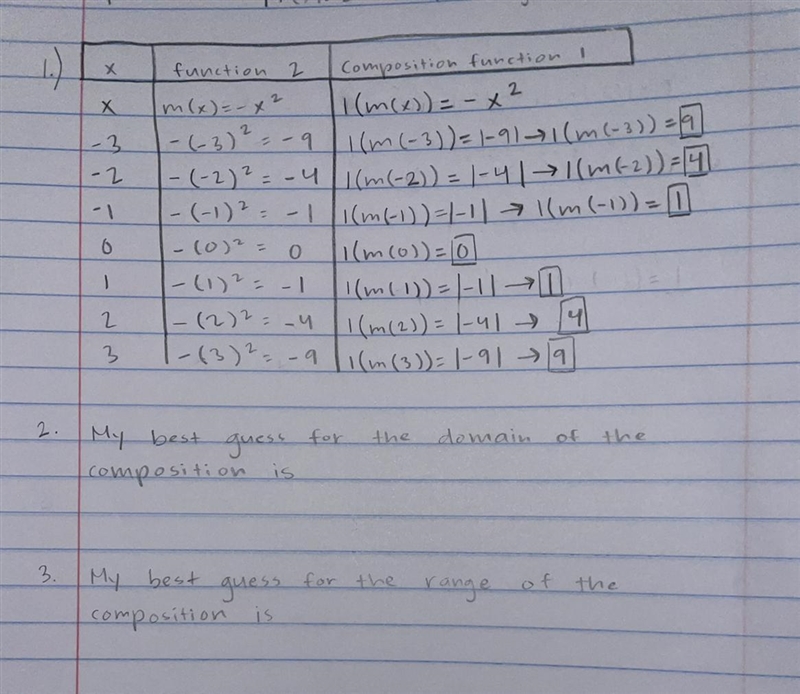 1.) x function 2 Composition function 1
x m(x)=-x² l(m(x))=-x²
-3 -(-3)²=-9 l(m(-3))=|-9|→l(m(-3))=9
-2 -(-2)²=-4 l(m(-2))=|-4|→l(m(-2))=4
-1 -(-1)²=-1 l(m(-1))=|-1|→l(m(-1))=1
0 -(0)²=0 l(m(0))=0
1 -(1)²=-1 l(m(1))=|-1|→1
2 -(2)²=-4 l(m(2))=|-4|→4
3 -(3)²=-9 l(m(3))=|-9|→9
2. My best guess for the domain of the
composition is
3. My best guess for the range of the
composition is